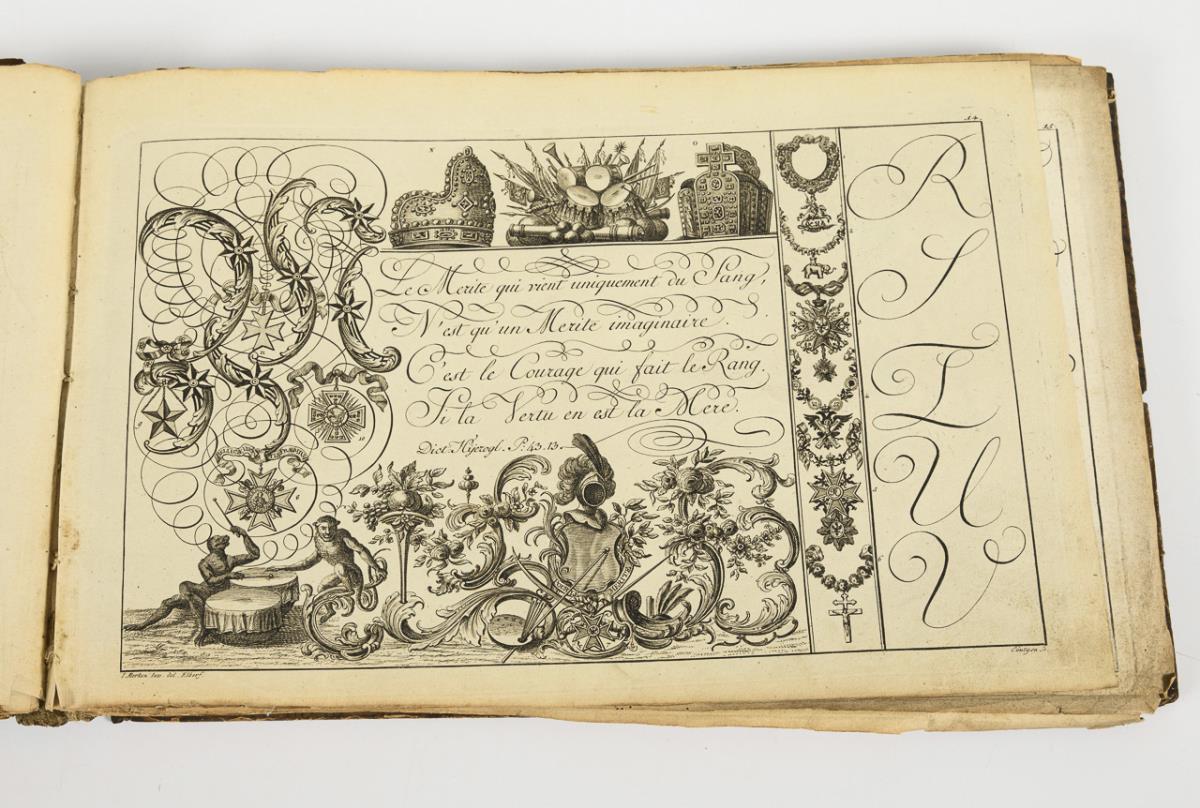 14.
15.
N
O
Le Merite qui vient uniquement du Sang,
N'est qu'un Merite imaginaire.
C'est le Courage qui fait le Rang.
Si ta Vertu en est la Mere.
Dict. Hÿerogl. P. 43. 13.
R
S
T
U
V
10
I. Merken Inv. del. Elberf.
Cöntgen S.